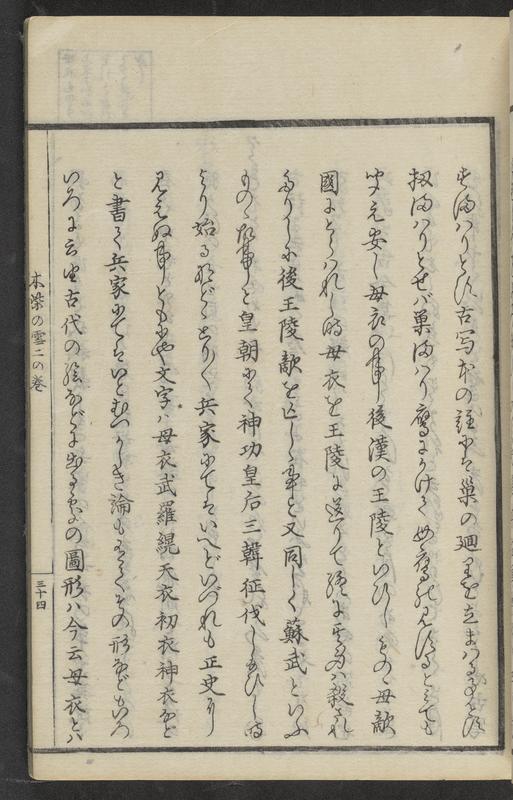 すまハりといひ古写本の註にも巣の廻りを立まハる事見え
扨まハりとせバ巣まハり鷹にかけて母鷹の見ゆるとミても
聞え安し母衣の事後漢の王陵といひしものゝ母敵
國にとらハれし時母衣を王陵に送りて終に其身ハ殺され
たりしに後王陵敵を亡しゝ事と又同しく蘇武といふ
ものゝ故事と皇朝にて神功皇后三韓征伐し給ひし時
より始るなどとりく兵家にてハいへどいづれも正史に
見えぬ事ともにや文字ハ母衣武羅縨天衣初衣神衣など
と書て兵家にてハいとむつかしき論もありその形なども
いろに云也古代の絵などに出る處の圖形ハ今云母衣とハ
木染の雲二の巻
三十四